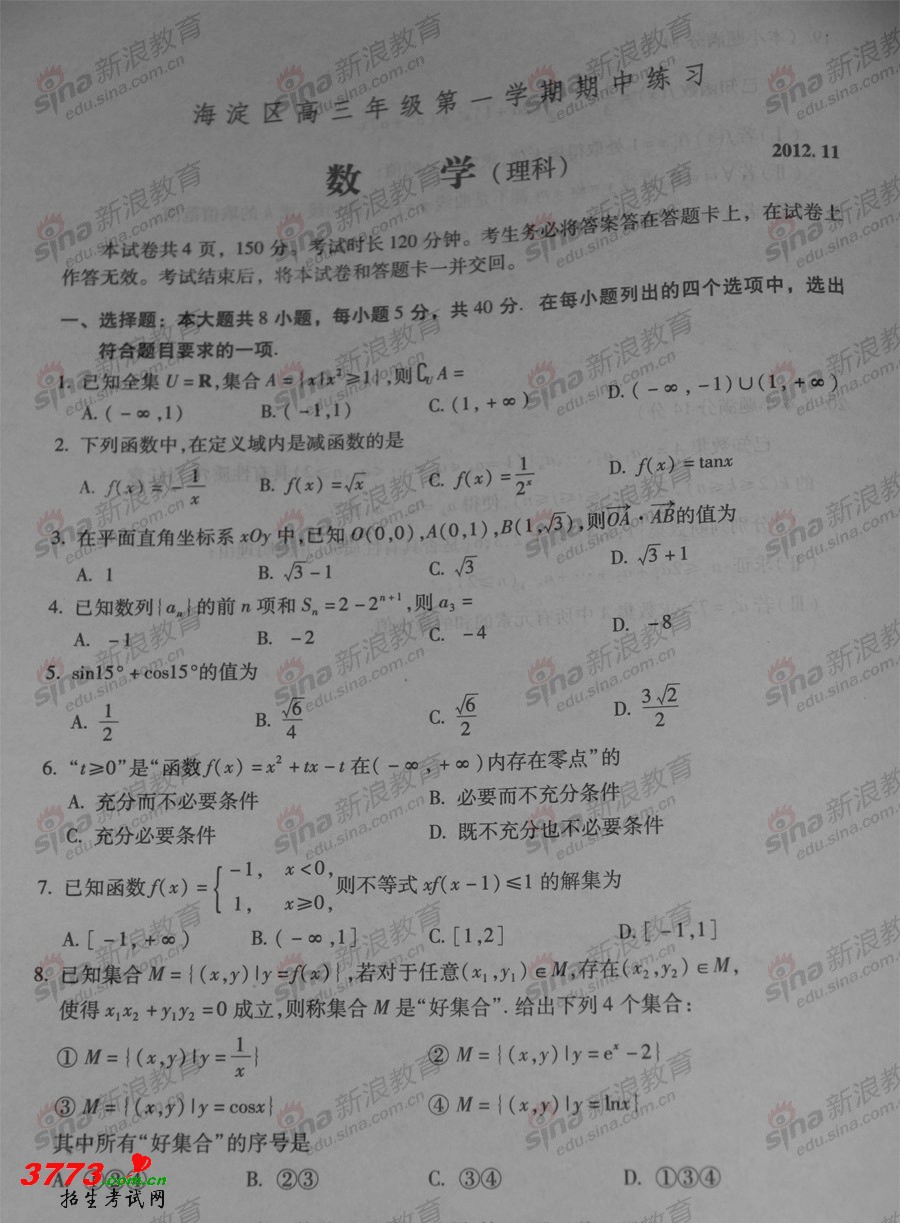 海淀区高三年级第一学期期中练习
数 学(理科)
2012.11
本试卷共4页，150分。考试时长120分钟。考生务必将答案答在答题卡上，在试卷上
作答无效。考试结束后，将本试卷和答题卡一并交回。
一、选择题：本大题共8小题，每小题5分，共40分．在每小题列出的四个选项中，选出
符合题目要求的一项.
1. 已知全集 U = R,集合 A = {x|x²≥1},则∁UA =
A. (-∞,1) B. (-1,1) C. (1,+∞) D. (-∞,-1)∪(1,+∞)
2. 下列函数中,在定义域内是减函数的是
A. f(x) = -1/x B. f(x) = √x C. f(x) = 1/2ˣ D. f(x) = tanx
3. 在平面直角坐标系 xOy 中,已知 O(0,0),A(0,1),B(1,√3),则OA·AB的值为
A. 1 B. √3-1 C. √3 D. √3+1
4. 已知数列{aₙ}的前 n 项和 Sₙ = 2-2ⁿ⁺¹,则 a₃ =
A. -1 B. -2 C. -4 D. -8
5. sin15°+cos15°的值为
A. 1/2 B. √6/4 C. √6/2 D. 3√2/2
6. “t≥0”是“函数 f(x) = x²+tx-t 在(-∞,+∞)内存在零点”的
A. 充分而不必要条件 B. 必要而不充分条件
C. 充分必要条件 D. 既不充分也不必要条件
7. 已知函数 f(x) = { -1, x<0, 1, x≥0, 则不等式 xf(x-1)≤1 的解集为
A. [-1,+∞) B. (-∞,1] C. [1,2] D. [-1,1]
8. 已知集合 M = {(x,y)|y=f(x)},若对于任意(x₁,y₁)∈M,存在(x₂,y₂)∈M,
使得 x₁x₂+y₁y₂=0 成立,则称集合 M 是“好集合”. 给出下列 4 个集合：
① M = {(x,y)|y=1/x} ② M = {(x,y)|y=eˣ-2}
③ M = {(x,y)|y=cosx} ④ M = {(x,y)|y=lnx}
其中所有“好集合”的序号是
A. ①②④ B. ②③ C. ③④ D. ①③④
3773.com.cn
招生考试网
sina新浪教育
edu.sina.com.cn